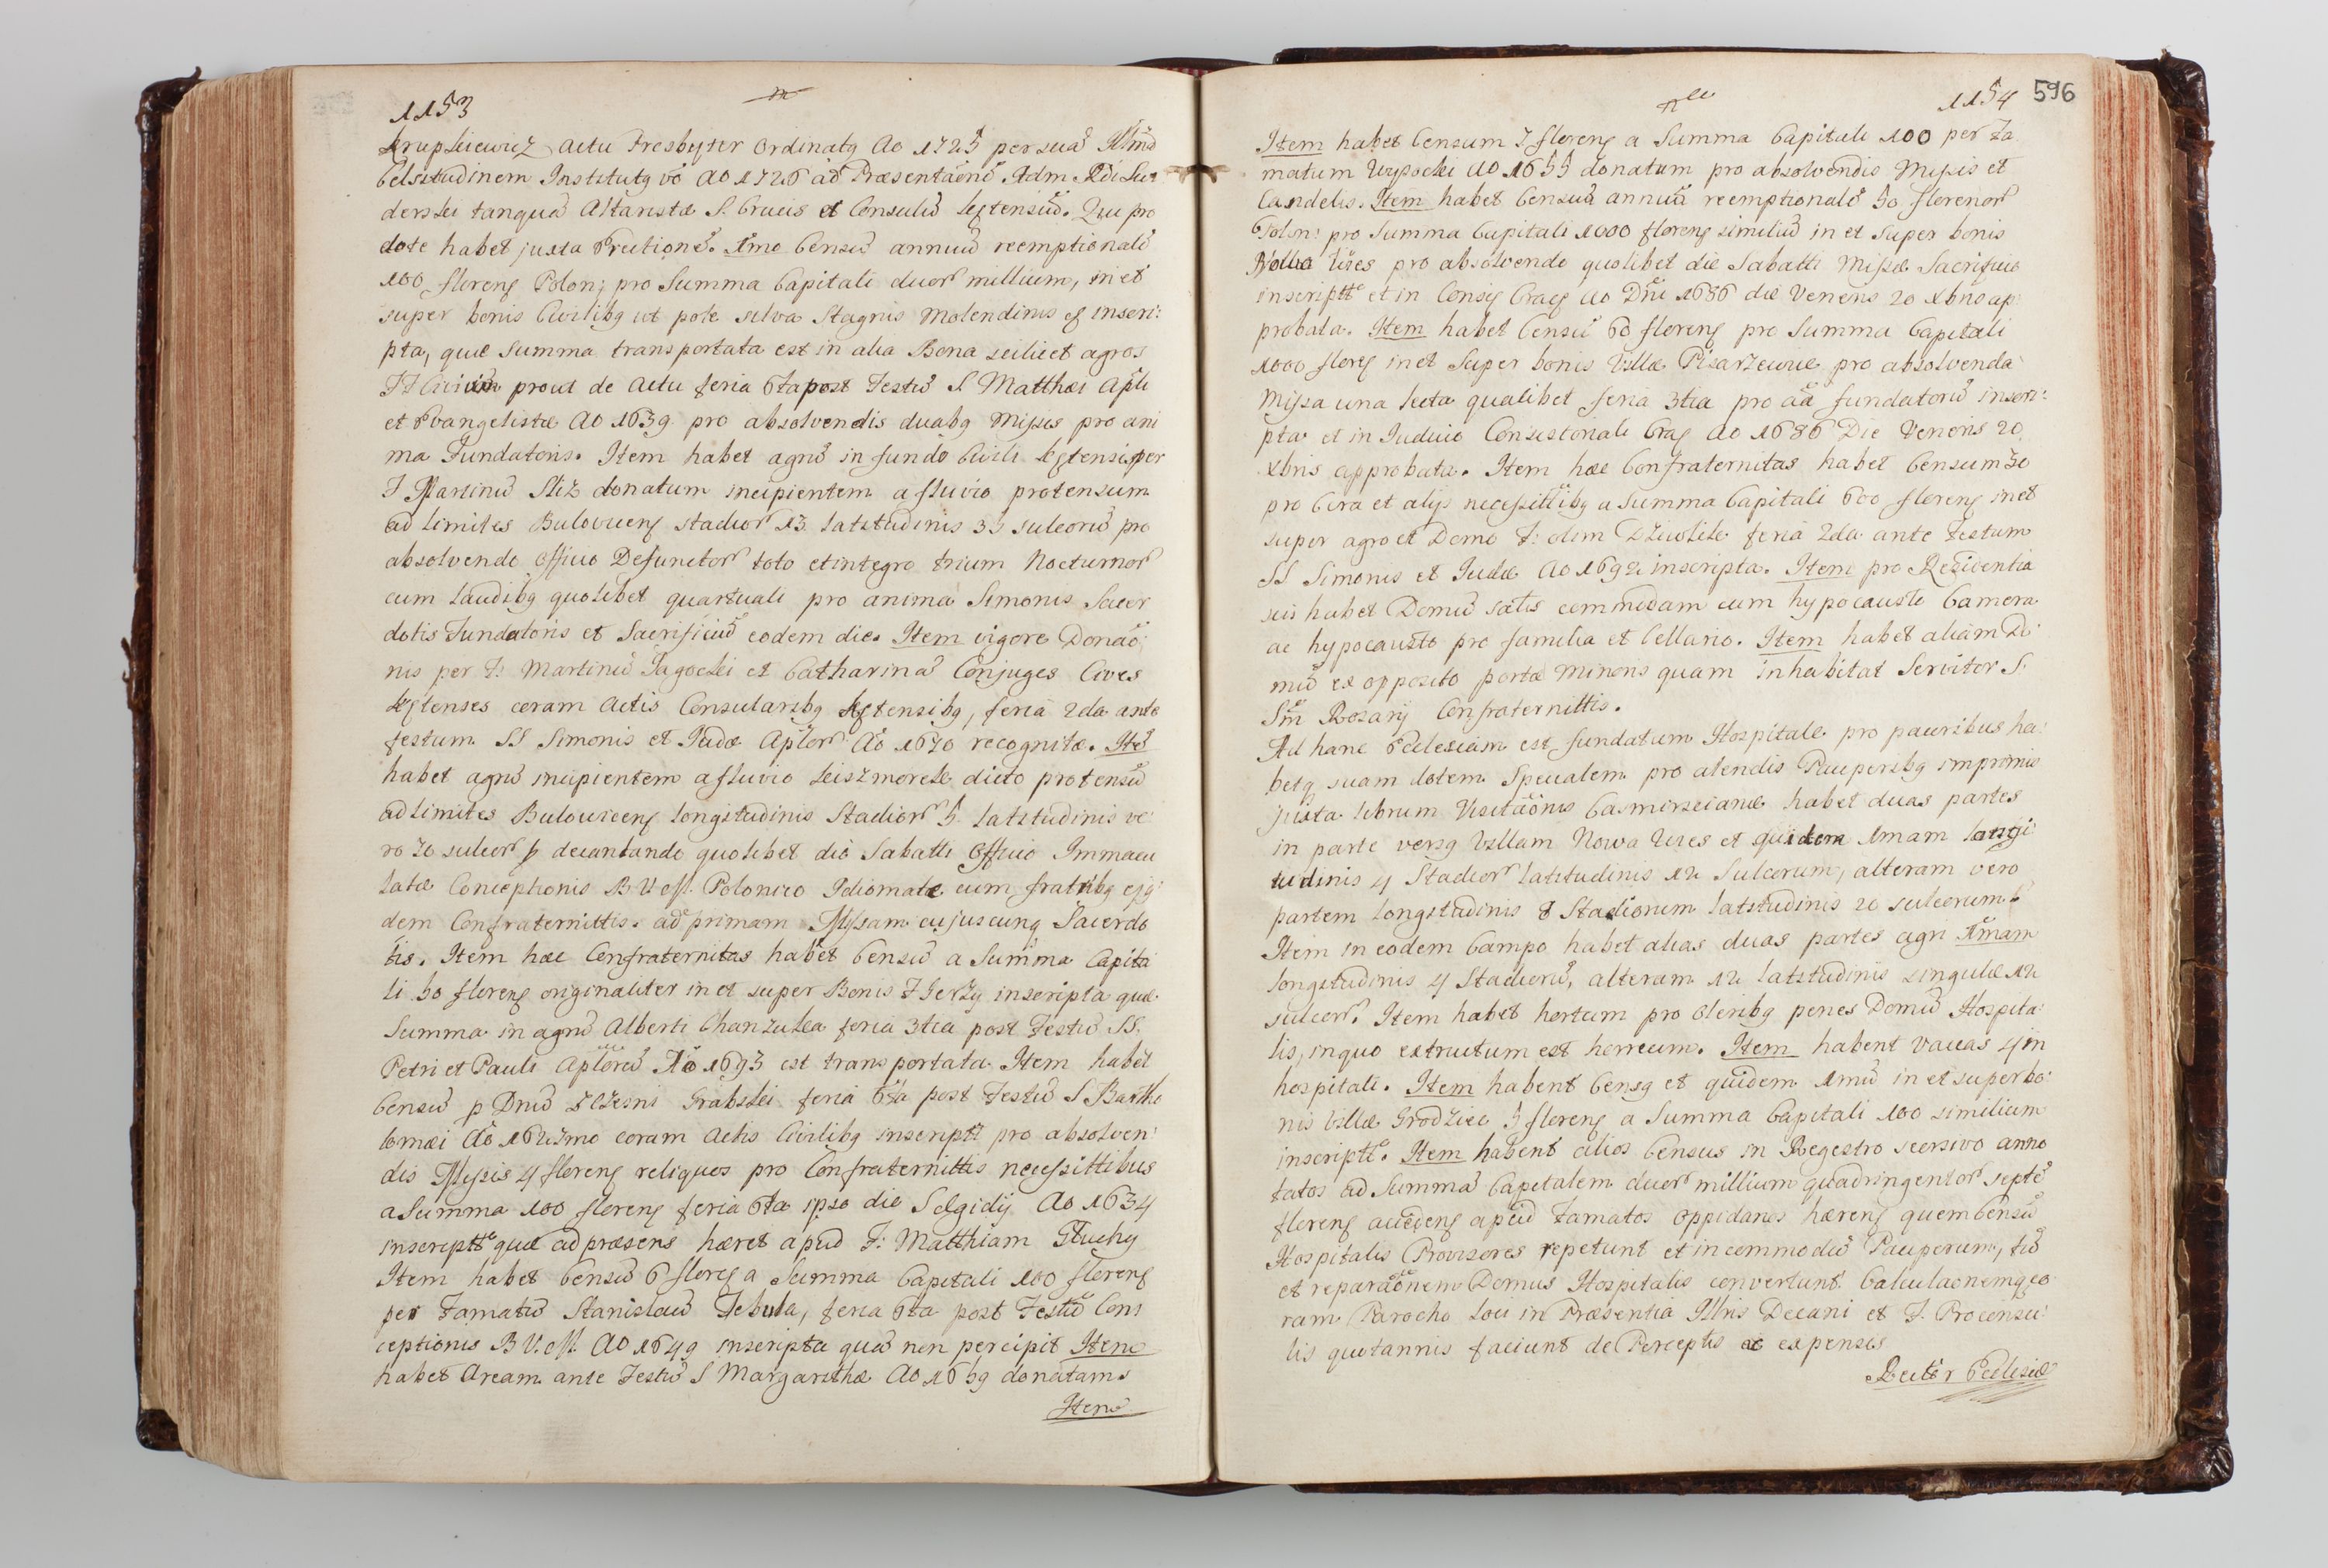 1153
Krupkiewicz actu Presbyter Ordinatg Ao 1725 per suã Illmã
Celsitudinem Institutg vō Ao 1726 ad Præsentãonē Adm Rdi Sur
derski tanquã Altaristæ S. Crucis et Consulũ Kętensiũ. Qui pro
dote habet juxta Erectionē. 1mo Censũ annuũ reemptionalē
100 floreng Polon; pro Summa Capitali duor millium, in et
super bonis Civilibg ut pote silva Stagnis Molendinis inscri:
pta, quæ Summa transportata est in alia Bona scilicet agros
prout de Actu feria 6ta post Festũ S Matthæi Apli
et Evangelistæ Ao 1639 pro absolvendis duabg Missis pro ani
ma Fundatoris. Item habet agrũ in fundo Civili Kętensi per
F Martinũ Sliz donatum incipientem a fluvio protensum
ad limites Buloviceng stadior 13 latitudinis 35 sulcorũ pro
absolvendo Officio Defunctor toto et integro trium Nocturnor
cum laudibg quolibet quartuali pro anima Simonis Sacer
dotis Fundatoris et Sacrificiũ eodem die. Item vigore Donaō
nis per F. Martinũ Jagocki et Catharinã Conjuges Cives
Kętenses coram Actis Consularibg Kętensibg, feria 2da ante
festum SS Simonis et Judæ Aplor Ao 1670 recognitæ. Itē
habet agrũ incipientem a fluvio Leiszmorek dicto protensũ
ad limites Buloviceng longitudinis Stadior 5. latitudinis ve
ro 70 sulcor p decantando quolibet die Sabatti Officio Immacu
latæ Conceptionis B V M. Polonico Idiomate cum fratribg ejg
dem Confraternittis. ad primam Missam cujuscunq Sacerdo
tis. Item hæc Confraternitas habet Censũ a Summa Capita
li 50 floreng originaliter in et super Bonis F Jerzy inscripta quæ
Summa in agrũ Alberti Chanzutka feria 3tia post Festũ SS.
Petri et Pauli Aplorũ Ao 1693 est transportata. Item habet
Censũ p Dnũ Grabski feria 6ta post Festũ S Bartho
lomæi Ao coram Actis Civilibg inscriptt pro absolven:
dis Missis 4 floreng reliquos pro Confraternittis necessittibus
a Summa 100 floreng feria 6ta ipso die S Ægidij Ao 1634
inscriptt quæ ad præsens hæret apud F: Matthiam Gluchy
Item habet Censũ 6 floreg a Summa Capitali 100 floreng
per Famatũ Stanislaũ Zebula, feria 6ta post Festũ Con
ceptionis B V. M. Ao 1649 inscripta quã non percipit Item
habet Aream ante Festũ S Margarithæ Ao 1659 donatam.
Item
1154 596
Item habet Censum 7 floreng a Summa Capitali 100 per Fa
matum Wysocki Ao 1655 donatum pro absolvendis Missis et
Candelis. Item habet Censũ annuũ reemptionalē 50 florenor
Polon: pro Summa Capitali 1000 floreng similiũ in et Super bonis
Nowa Wies pro absolvendo quolibet die Sabatti Missæ Sacrificio
inscriptt et in Consig Crac Ao Dni 1686 die Veneris 20 Xbris ap:
probata. Item habet Censũ 60 floreng pro Summa Capitali
1000 floreg in et Super bonis Villæ Pisarzewic pro absolvenda
Missa una lecta qualibet feria 3tia pro aa fundatorũ inscri:
pta et in Judicio Consistoriali Crac Ao 1686 Die Veneris 20
Xbris approbata. Item hæc Confraternitas habet Censum 30
pro Cera et alijs necessittibg a Summa Capitali 600 floreng in et
super agro et Domo F: olim feria 2da ante Festum
SS Simonis et Judæ Ao 1692 inscripta. Item pro Rezidentia
sui habet Domũ satis commodam cum hypocausto Camera
ac hypocausto pro familia et Cellario. Item habet aliam Do
mũ ex opposito portæ Minoris quam inhabitat Servitor S.
Smi Rosarij Confraternittis.
Ad hanc Ecclesiam est fundatum Hospitale pro pauribus ha:
betq suam dotem Specialem pro alendis Pauperibg imprimis
juxta librum Visitaōnis Casmirscianæ habet duas partes
in parte versg Villam Nowa Wies et quidem 1mam longi
tudinis 4 Stadior latitudinis 12 Sulcorum, alteram vero
partem longitudinis 8 Stadiorum latitudinis 20 sulcorum.
Item in eodem Campo habet alias duas partes agri 1mam
longitudinis 4 Stadiorũ, alteram 12 latitudinis singulæ 12
sulcor. Item habet hortum pro oleribg penes Domũ Hospita:
lis, in quo extructum est horreum. Item habent vaccas 4 in
hospitali. Item habent Censg et quidem 1mũ in et super bo:
nis Villæ Grodziec 5 floreng a Summa Capitali 100 similium
inscriptt. Item habent alios Census in Regestro seorsivo anno
tatos ad Summã Capitalem duor millium quadringentor septē
floreng accedeng apud Famatos Oppidanos hæreng quem Censũ
Hospitalis Provisores repetunt et in commodũ Pauperum, tũ
et reparaōnem Domus Hospitalis convertunt. Calculaonemq eo
ram Parocho loci in Præsentia Illris Decani et F. Proconsu:
lis quotannis faciunt de Perceptis ac expensis
Rector Ecclesiæ